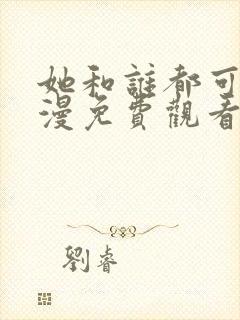 她和誰都可
漫免費觀看
劉睿